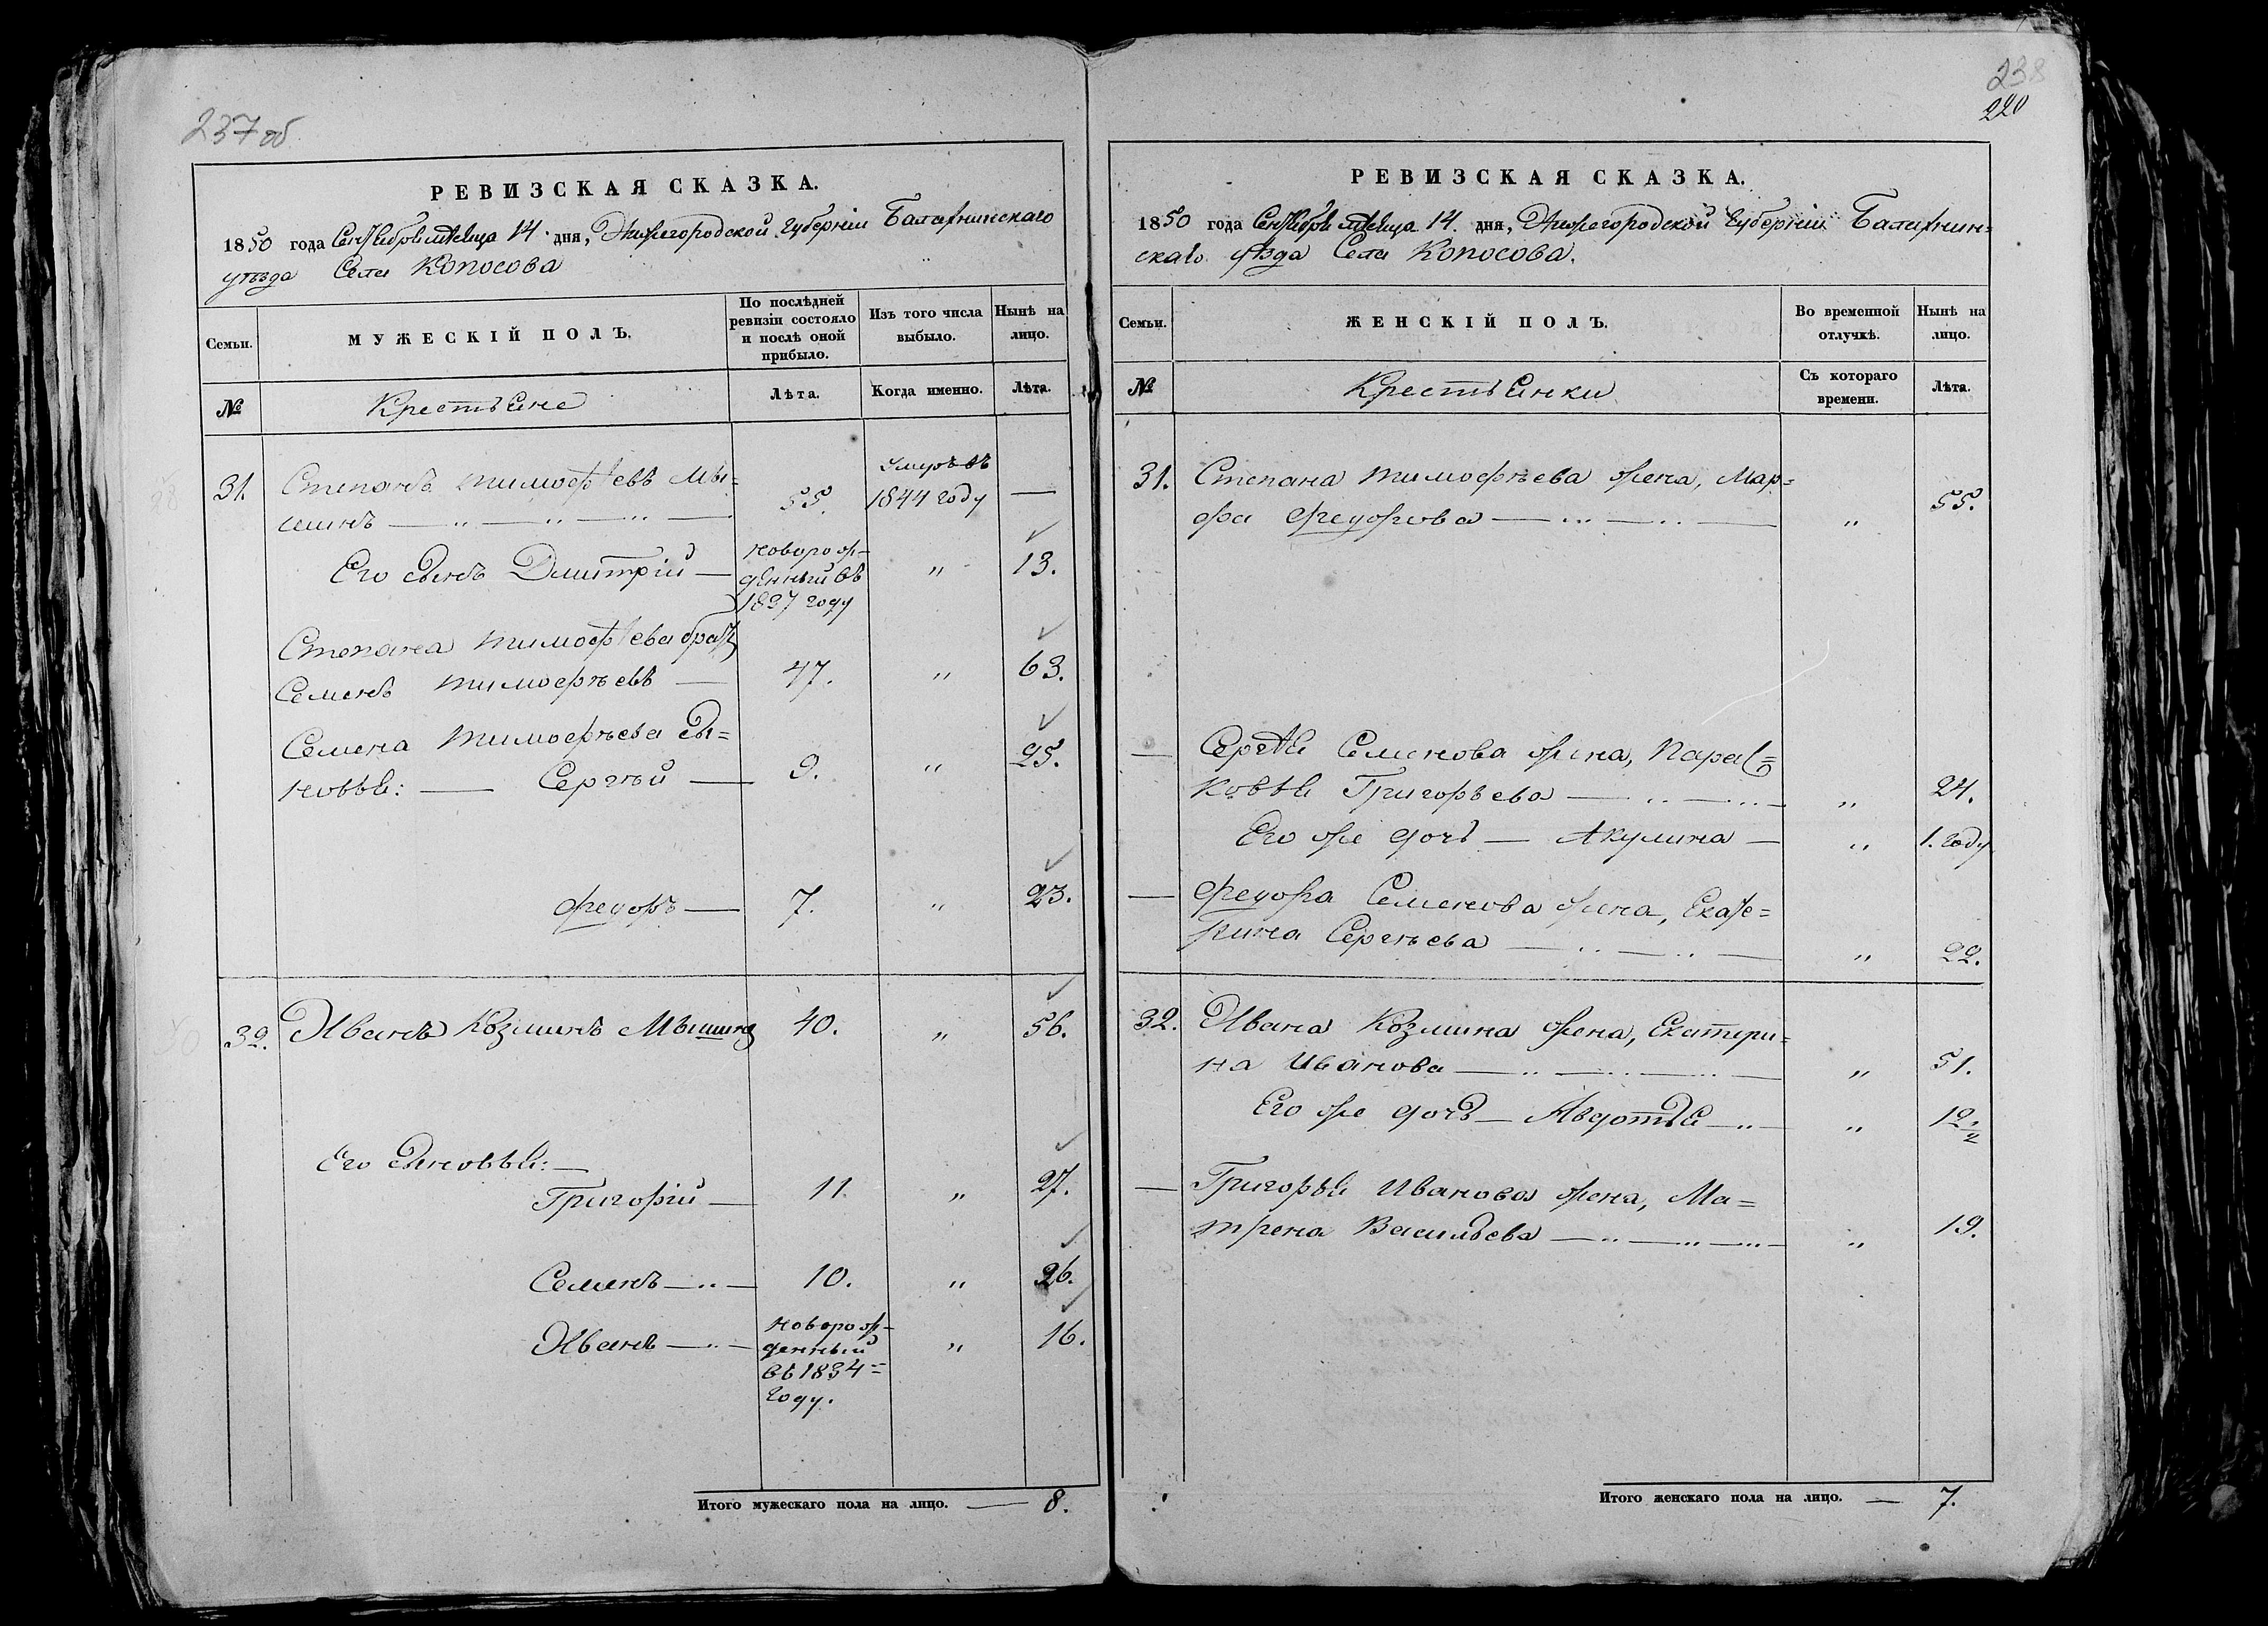 237 об
РЕВИЗСКАЯ СКАЗКА.
1850 года Сентября месяца 14. дня, Нижегородской Губерніи Балахнинскаго
уѣзда Села Копосова
Семьи.
МУЖЕСКІЙ ПОЛЪ.
По послѣдней
ревизіи состояло
и послѣ оной
прибыло.
Изъ того числа
выбыло.
Нынѣ на
лицо.
№
Крестьяне
Лѣта.
Когда именно.
Лѣта.
31. Степанъ Тимофѣевъ Мы=
шинъ — „ — „ — „ — 55. Умръ въ
1844 году —
Его сынъ Дмитрій — новорож-
денный въ
1837 году „ 13.
Степана Тимофѣева братъ
Семенъ Тимофѣевъ — 47. „ 63.
Семена Тимофѣева Сы=
новья: — Сергѣй — 9. „ 25.
Федоръ — 7. „ 23.
32. Иванъ Козминъ Мышинъ 40. „ 56.
Его Сыновья: —
Григорій — 11. „ 27.
Семенъ — „ — 10. „ 26.
Иванъ — „ — новорож-
денный
въ 1834=
году. „ 16.
Итого мужескаго пола на лицо. — 8.
238
220
РЕВИЗСКАЯ СКАЗКА.
1850 года Сентября месяца 14. дня, Нижегородской Губерніи Балахнин=
скаго уѣзда Села Копосова.
Семьи.
ЖЕНСКІЙ ПОЛЪ.
Во временной
отлучкѣ.
Нынѣ на
лицо.
№
Крестьянки
Съ котораго
времени.
Лѣта.
31. Степана Тимофѣева жена, Мар=
фа Федорова — „ — „ — „ 55.
— Сергѣя Семенова жена, Парас=
ковья Григорьева — „ — „ — „ 24.
Его же дочь — Акулина — „ 1. году
— Федора Семенова жена, Екате=
рина Сергѣева — „ — „ — „ 22.
32. Ивана Козмина жена, Екатери=
на Иванова — „ — „ — „ — „ 51.
Его же дочь — Авдотья — „ — „ 12½
— Григорья Иванова жена, Ма=
трена Васильева — „ — „ — „ — „ 19.
Итого женскаго пола на лицо. — 7.